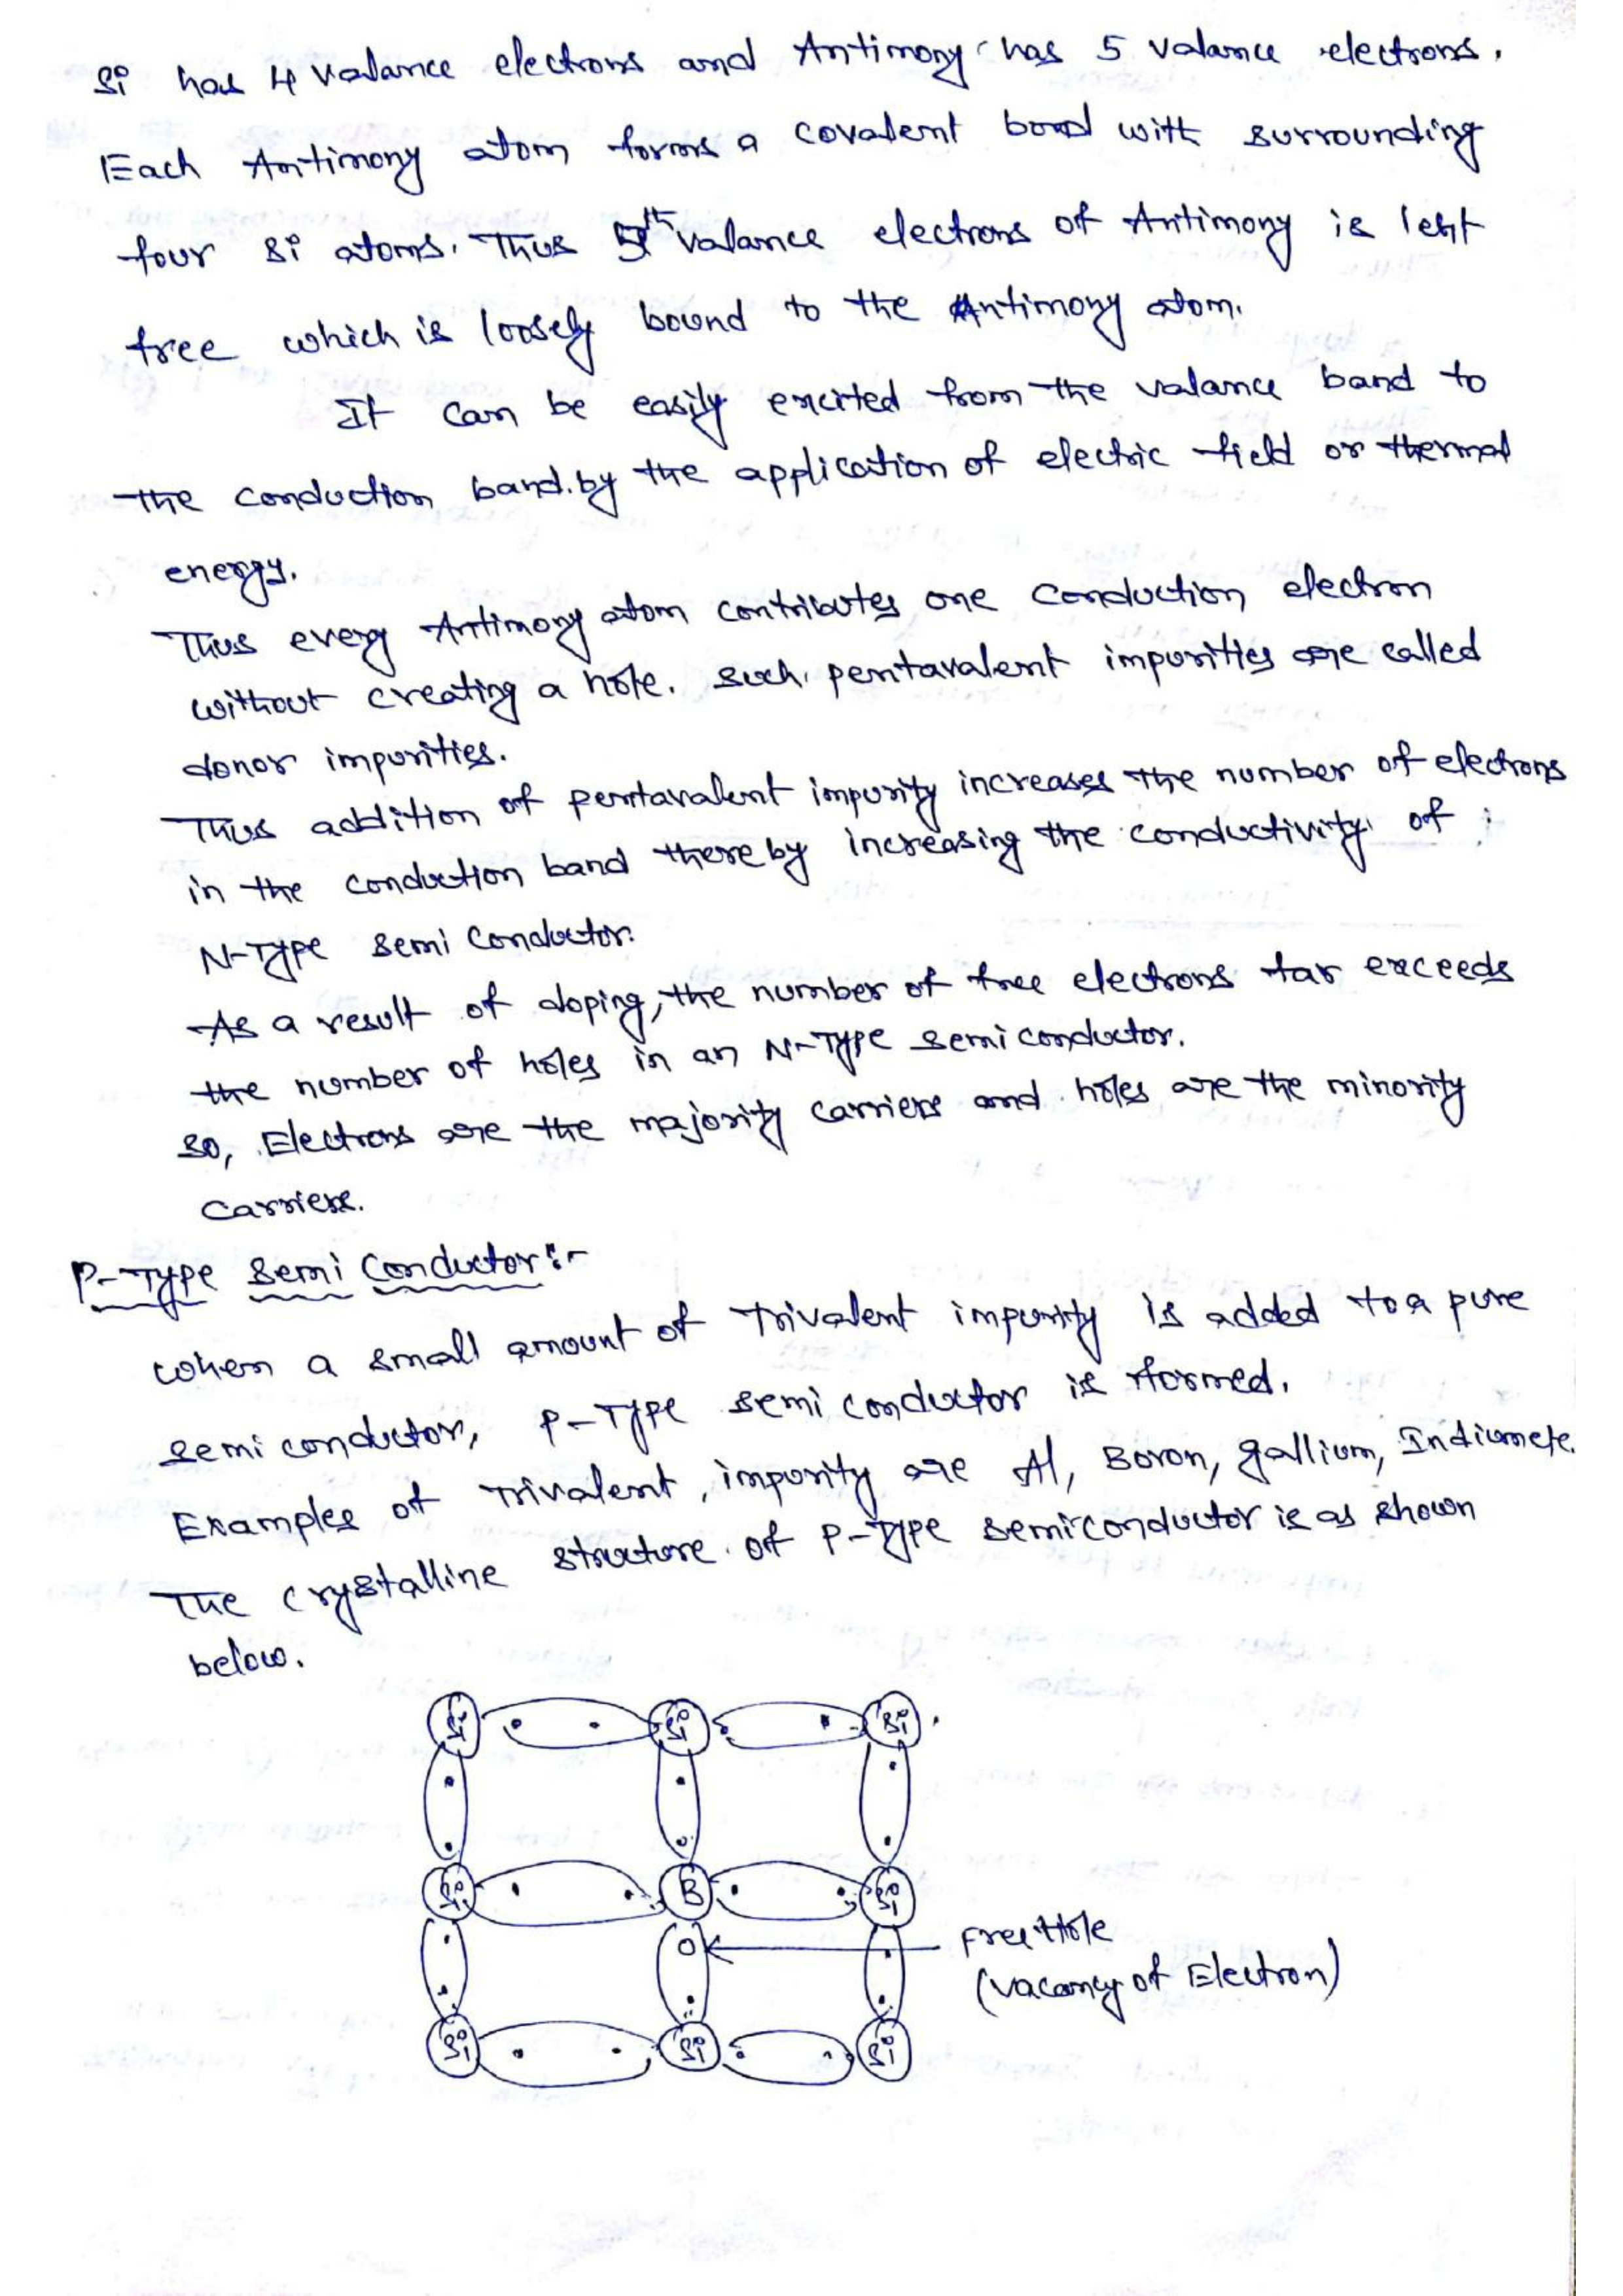 Si has 4 valance electrons and Antimony has 5 valance electrons.
Each Antimony atom forms a covalent bond with surrounding
four Si atoms. Thus 5th valance electrons of Antimony is left
free which is loosely bound to the Antimony atom.
It can be easily excited from the valance band to
the conduction band.by the application of electric field or thermal
energy.
Thus every Antimony atom contributes one conduction electron
without creating a hole. Such pentavalent impurities are called
donor impurities.
Thus addition of pentavalent impurity increases the number of electrons
in the conduction band thereby increasing the conductivity of
N-Type Semi Conductor.
As a result of doping, the number of free electrons far exceeds
the number of holes in an N-Type Semi conductor.
So, Electrons are the majority carriers and holes are the minority
carriers.
P-Type Semi Conductor:-
When a small amount of Trivalent impurity is added to a pure
Semi conductor, P-Type Semi conductor is formed.
Examples of Trivalent impurity are Al, Boron, gallium, Indium etc.
The crystalline structure of P-Type Semiconductor is as shown
below.
Si Si Si
Si B Si
Free Hole
(vacancy of Electron)
Si Si Si